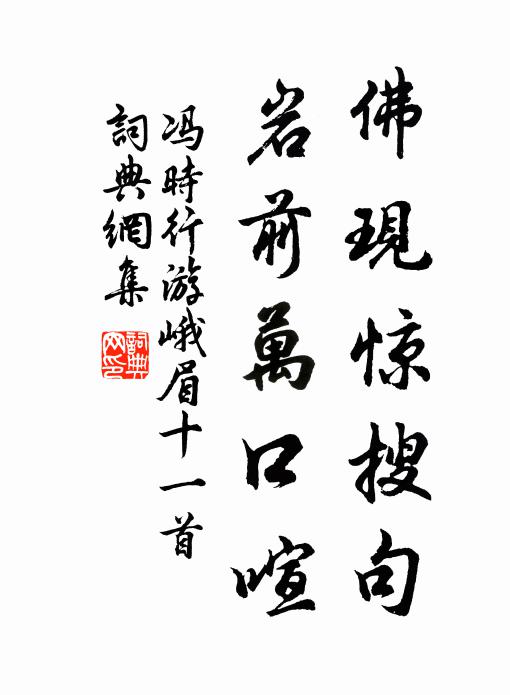 佛現惊搜句
岩前萬口喧
冯時行游峨眉十一首
詞典網集
詞典
网印